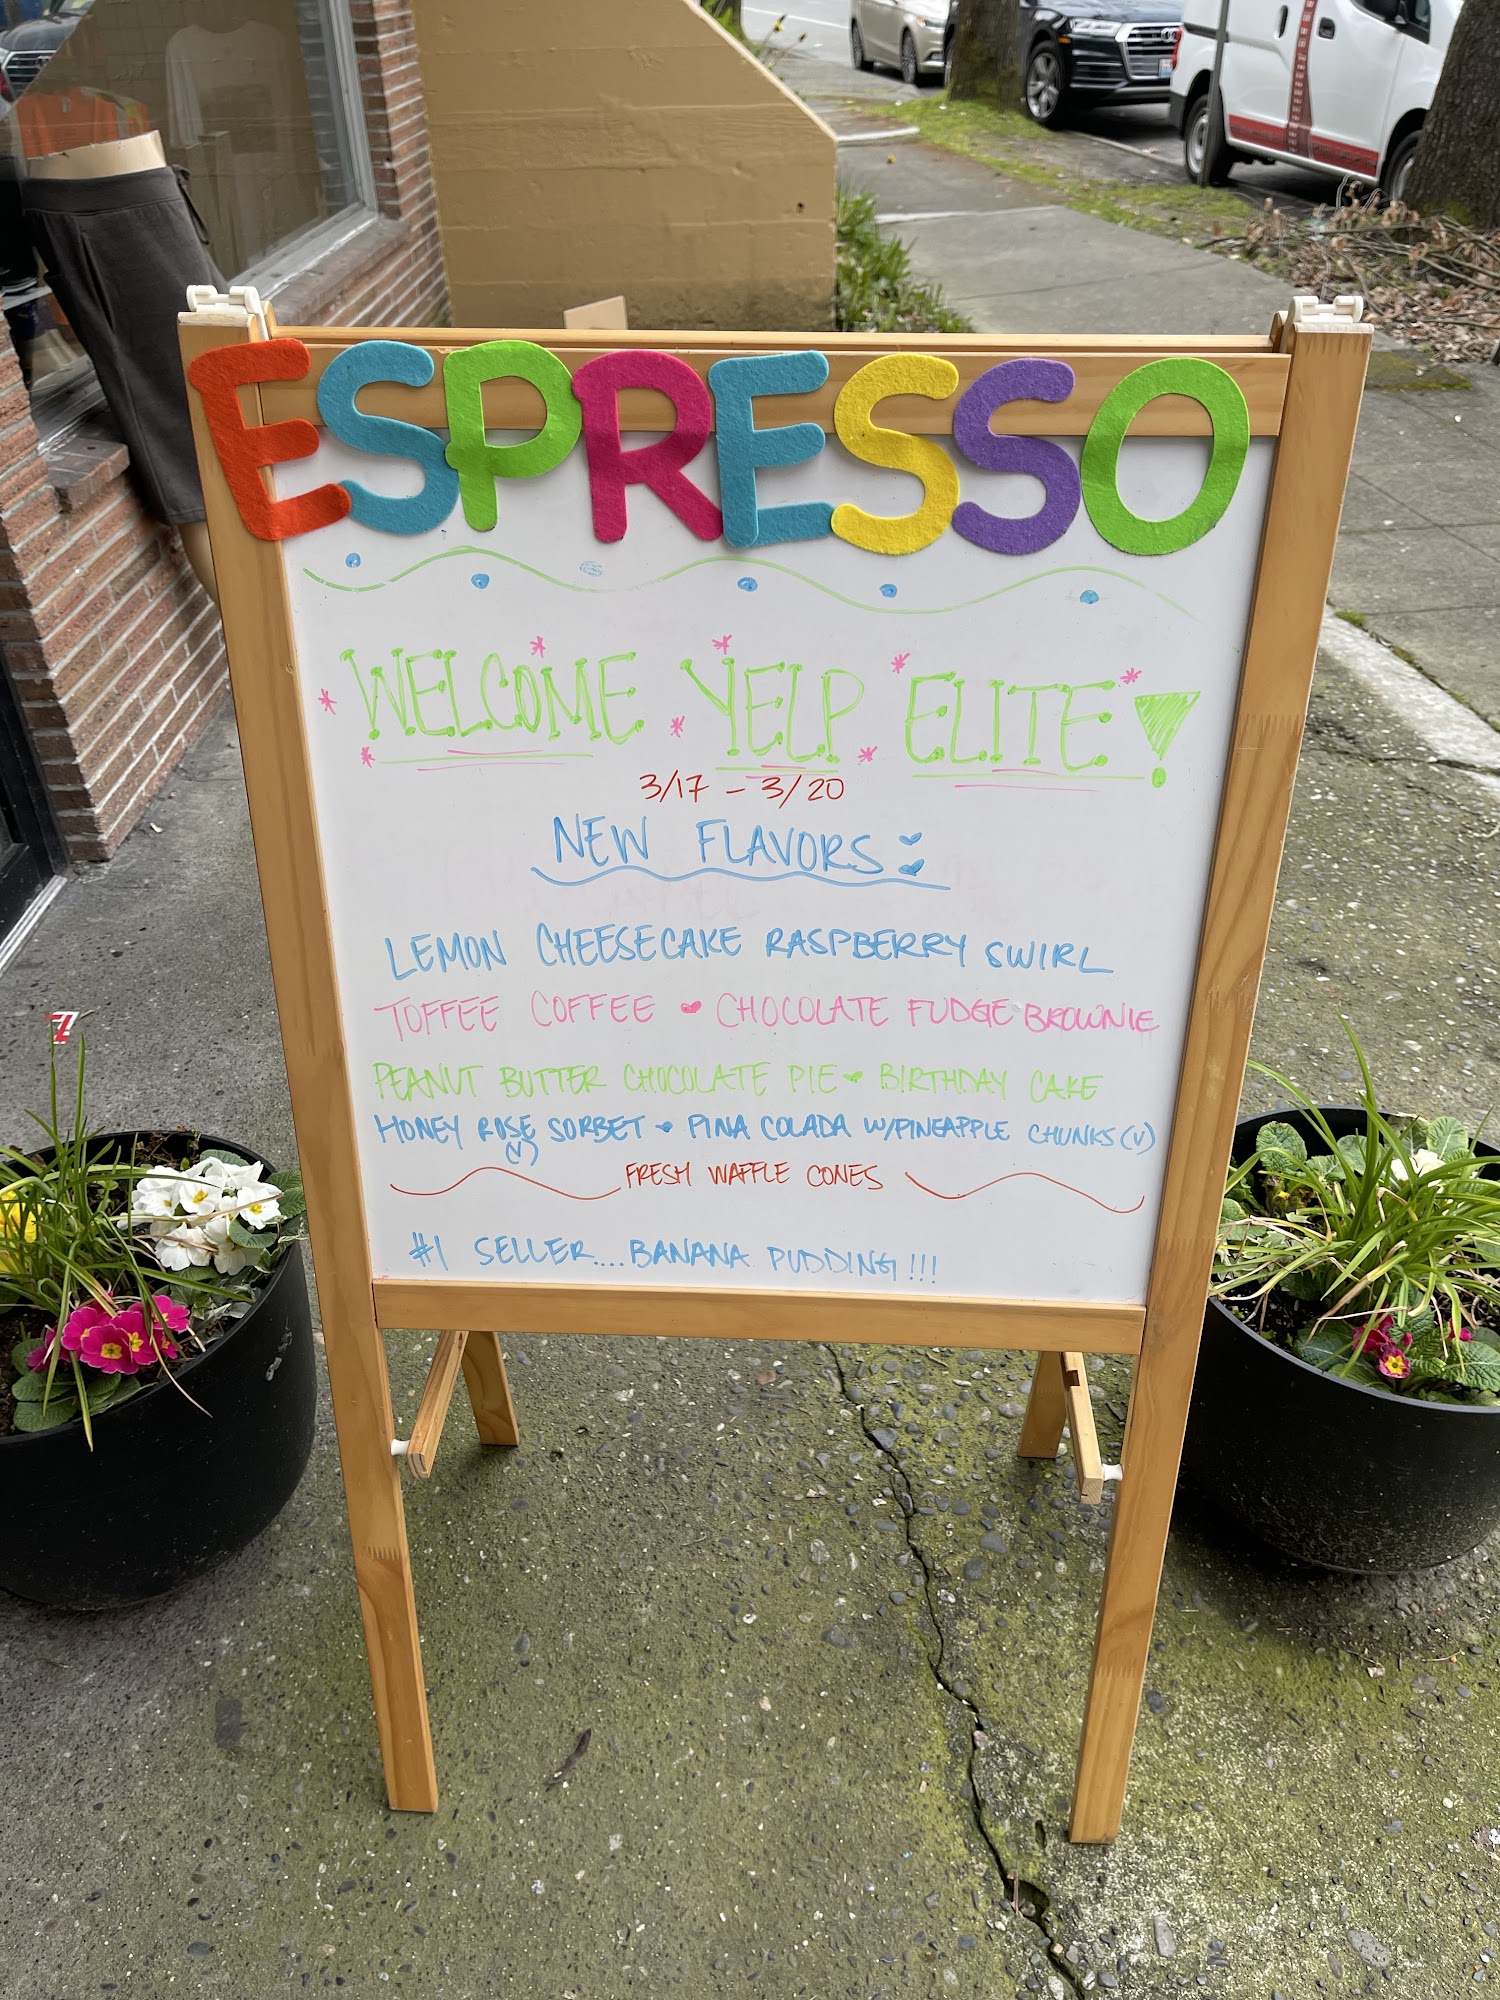 ESPRESSO
WELCOME YELP ELITE!
3/17 - 3/20
NEW FLAVORS
LEMON CHEESECAKE RASPBERRY SWIRL
TOFFEE COFFEE ♥ CHOCOLATE FUDGE BROWNIE
PEANUT BUTTER CHOCOLATE PIE ♥ BIRTHDAY CAKE
HONEY ROSE SORBET ♥ PINA COLADA W/PINEAPPLE CHUNKS (V)
(V)
FRESH WAFFLE CONES
#1 SELLER....BANANA PUDDING!!!